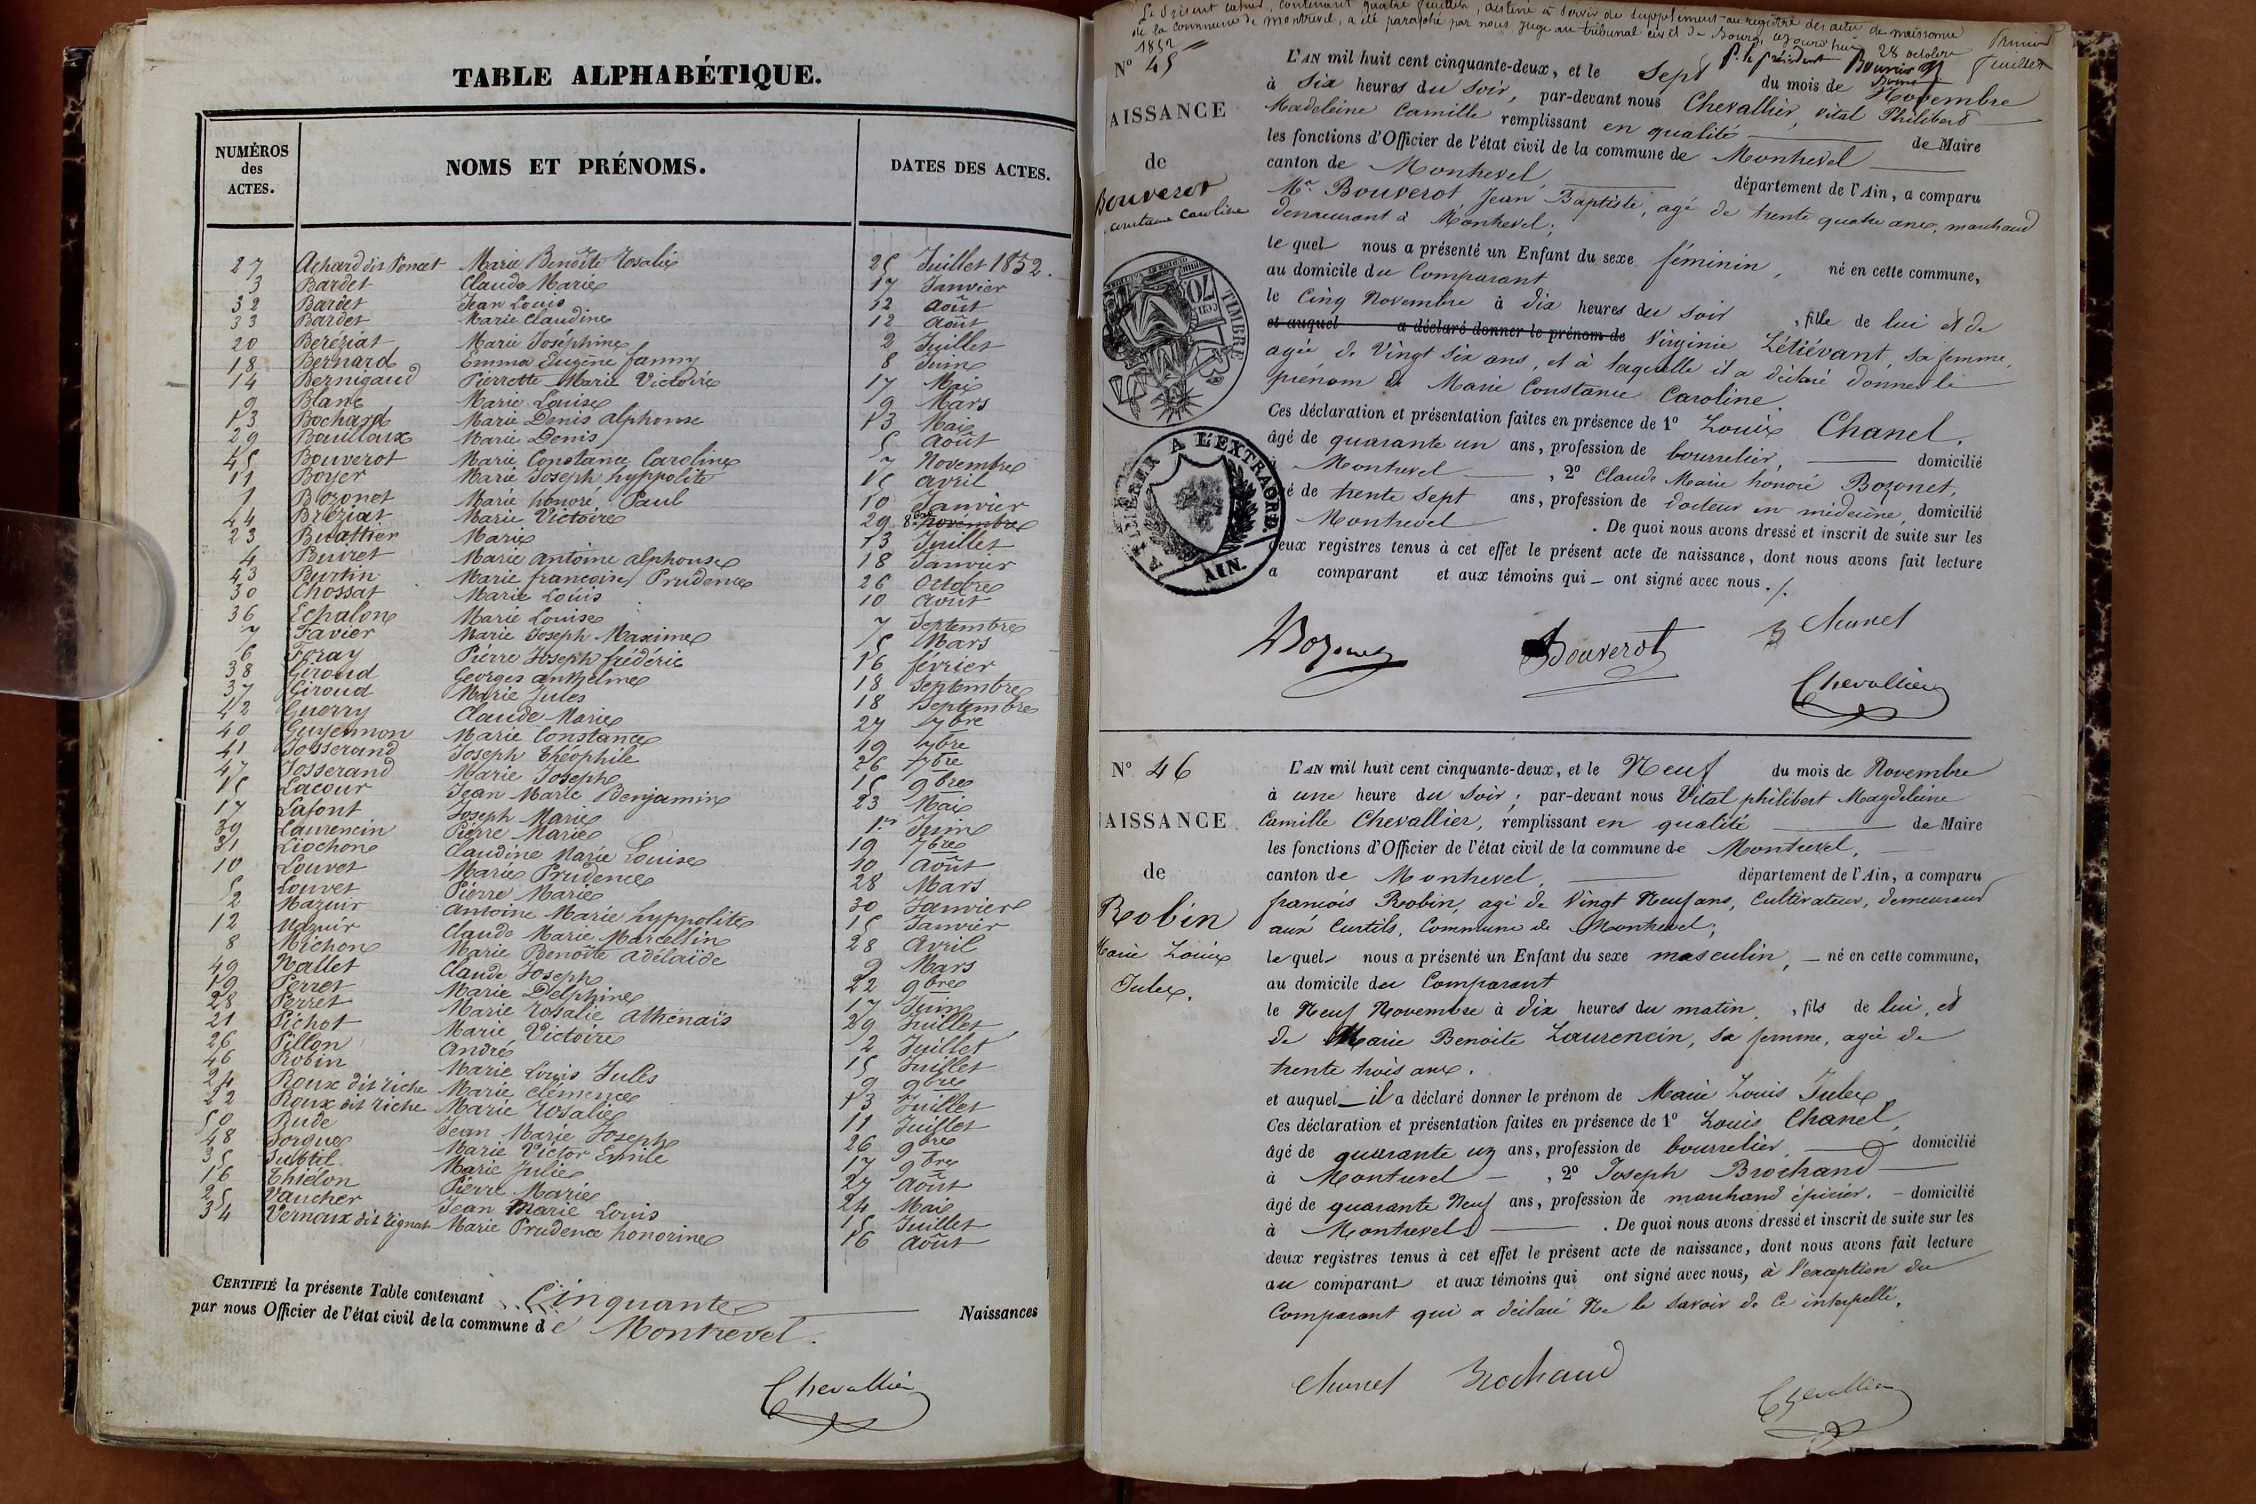 TABLE ALPHABÉTIQUE.
NUMÉROS des ACTES. NOMS ET PRÉNOMS. DATES DES ACTES.
27 Achard dit Poncet Marie Benoîte Rosalie 25 Juillet 1852.
3 Bardet Claude Marie 17 Janvier
32 Bardet Jean Louis 12 Août
33 Bardet Marie Claudine 12 Août
20 Beréziat Marie Joséphine 2 Juillet
18 Bernard Emma Eugène fanny 8 Juin
14 Bernigaud Pierrette Marie Victoire 17 Mai
9 Blanc Marie Louise 9 Mars
13 Bochard Marie Denis alphonse 13 Mai
29 Bouilloux Marie Denis 5 Août
45 Bouverot Marie Constance Caroline 7 Novembre
11 Boyer Marie Joseph hyppolite 15 avril
1 Bozonet Marie honoré Paul 10 Janvier
44 Bréziat Marie Victoire 29 8bre novembre
23 Buathier Marie 13 Juillet
4 Buiret Marie antoine alphonse 18 Janvier
43 Burtin Marie françoise Prudence 26 Octobre
30 Chossat Marie Louis 10 Août
36 Echalon Marie Louise 7 Septembre
7 Favier Marie Joseph Maxime 5 Mars
6 Foray Pierre Joseph frédéric 16 février
38 Giroud Georges anthelme 18 Septembre
37 Giroud Marie Jules 18 Septembre
42 Guerry Claude Marie 27 7bre
40 Guyennon Marie Constance 19 7bre
41 Josserand Joseph théophile 26 7bre
47 Josserand Marie Joseph 15 9bre
15 Lacour Jean Marie Benjamin 23 Mai
17 Lafont Joseph Marie 1er Juin
39 Laurencin Pierre Marie 19 7bre
31 Liochon Claudine Marie Louise 10 Août
10 Louvet Marie Prudence 28 Mars
5 Louvet Pierre Marie 30 Janvier
2 Mazuir Antoine Marie hyppolite 15 Janvier
12 Mazuir Claude Marie Marcellin 28 avril
8 Michon Marie Benoîte adélaïde 9 Mars
49 Nallet Claude Joseph 22 9bre
19 Perret Marie Delphine 17 Juin
28 Perret Marie Rosalie athenaïs 29 Juillet
21 Pichot Marie Victoire 2 Juillet
26 Pillon André 15 Juillet
46 Robin Marie Louis Jules 9 9bre
24 Roux dit riche Marie clémence 13 Juillet
22 Roux dit riche Marie Rosalie 11 Juillet
50 Rude Jean Marie Joseph 26 9bre
48 Sorgue Marie Victor Emile 17 9bre
35 Subtil Marie Julie 27 Août
16 Thiélon Pierre Marie 24 Mai
25 Vaucher Jean Marie Louis 15 Juillet
34 Vernoux dit Rignat Marie Prudence honorine 16 Août
CERTIFIÉ la présente Table contenant Cinquante Naissances
par nous Officier de l'état civil de la commune de Montrevel.
Chevallier
Le présent cahier, contenant quatre feuillets, destiné à servir de supplément au registre des actes de naissance
de la commune de Montrevel, a été paraphé par nous Juge au tribunal civil de Bourg, aujourd'hui 28 octobre
1852 P. le président
premier feuillet
N° 45
NAISSANCE
de
Bouverot
Constance Caroline
TIMBRE
70
A TIMBRER A L'EXTRAORD.
AIN.
L'AN mil huit cent cinquante-deux, et le Sept du mois de Novembre
à Six heures du Soir, par-devant nous Chevallier, Vital Philibert
Madeleine Camille remplissant en qualité de Maire
les fonctions d'Officier de l'état civil de la commune de Montrevel
canton de Montrevel, département de l'Ain, a comparu
Mr. Bouverot Jean Baptiste, agé de trente quatre ans, marchand
demeurant à Montrevel;
lequel nous a présenté un Enfant du sexe féminin, né en cette commune,
au domicile du Comparant
le Cinq Novembre à dix heures du soir, fille de lui et de
et auquel a déclaré donner le prénom de Virginie Létiévant, sa femme,
agée de Vingt six ans, et à laquelle il a déclaré donner le
prénom de Marie Constance Caroline.
Ces déclaration et présentation faites en présence de 1° Louis Chanel,
âgé de quarante un ans, profession de bourrelier, domicilié
à Montrevel, 2° Claude Marie honoré Bozonet,
âgé de trente sept ans, profession de docteur en médecine, domicilié
à Montrevel. De quoi nous avons dressé et inscrit de suite sur les
deux registres tenus à cet effet le présent acte de naissance, dont nous avons fait lecture
a comparant et aux témoins qui ont signé avec nous./.
Bozonet Bouverot Chanel
Chevallier
N° 46
NAISSANCE
de
Robin
Marie Louis
Jules.
L'AN mil huit cent cinquante-deux, et le Neuf du mois de Novembre
à une heure du Soir; par-devant nous Vital philibert Magdeleine
Camille Chevallier, remplissant en qualité de Maire
les fonctions d'Officier de l'état civil de la commune de Montrevel,
canton de Montrevel, département de l'Ain, a comparu
françois Robin, agé de Vingt Neuf ans, Cultivateur, demeurant
aux Curtils, Commune de Montrevel;
lequel nous a présenté un Enfant du sexe masculin, né en cette commune,
au domicile du Comparant
le Neuf Novembre à dix heures du matin, fils de lui, et
de Marie Benoite Laurencin, sa femme, agée de
trente trois ans.
et auquel il a déclaré donner le prénom de Marie Louis Jules
Ces déclaration et présentation faites en présence de 1° Louis Chanel,
âgé de quarante un ans, profession de bourrelier, domicilié
à Montrevel, 2° Joseph Brochand
âgé de quarante Neuf ans, profession de marchand épicier, domicilié
à Montrevel. De quoi nous avons dressé et inscrit de suite sur les
deux registres tenus à cet effet le présent acte de naissance, dont nous avons fait lecture
au comparant et aux témoins qui ont signé avec nous, à l'exception du
Comparant qui a déclaré Ne le Savoir de Ce interpellé.
Chanel Brochand
Chevallier